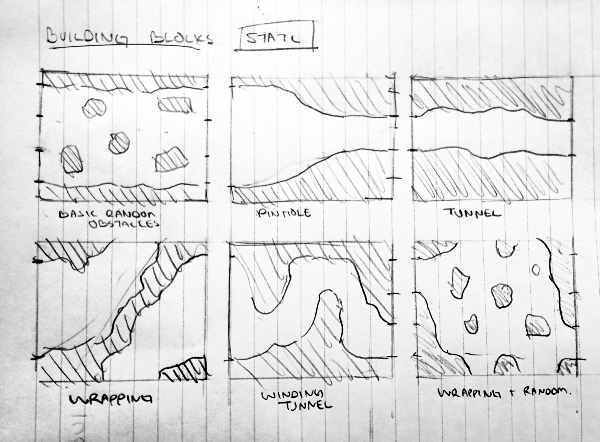 BUILDING BLOCKS
STATIC
BASIC RANDOM
OBSTACLES
PINHOLE
TUNNEL
WRAPPING
WINDING
TUNNEL
WRAPPING + RANDOM.